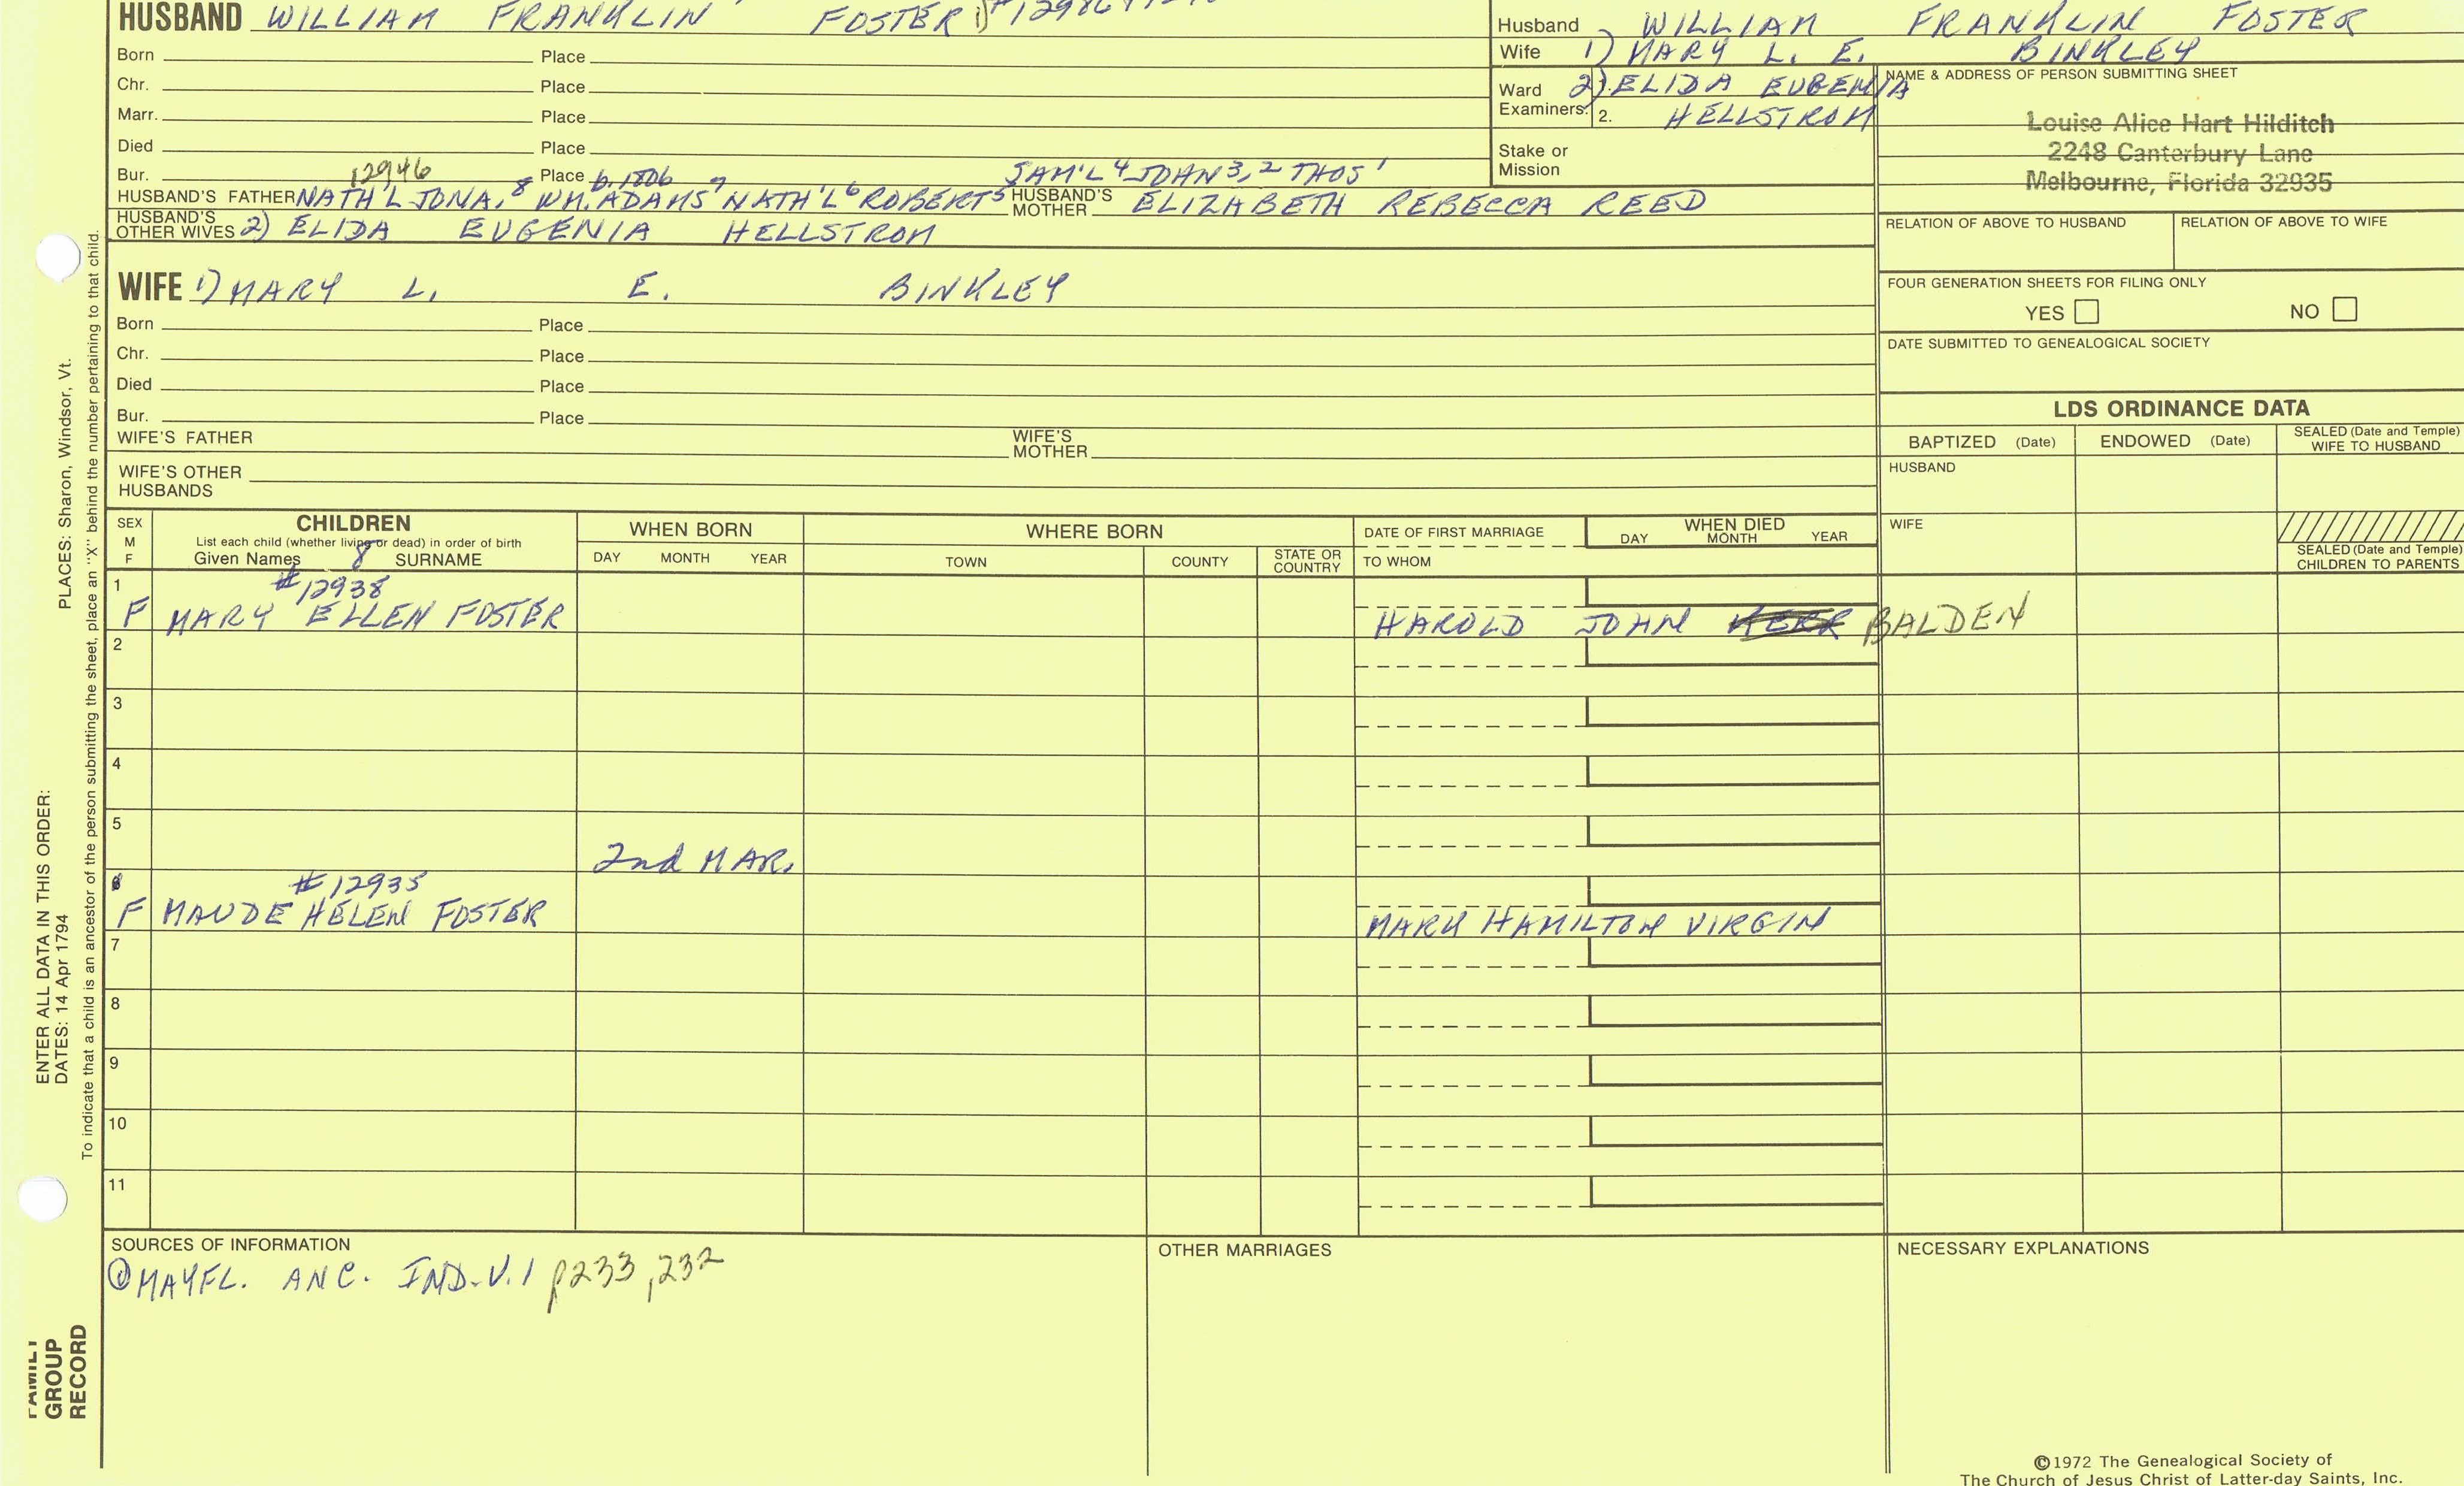 HUSBAND WILLIAM FRANKLIN FOSTER
Born Place
Chr. Place
Marr. Place
Died Place
Bur. 12946 Place b. 1806 SAM'L 4 JOHN 3, 2 THOS 1
HUSBAND'S FATHER NATH'L JONA. 8 WM. ADAMS 7 NATH'L 6 ROBERTS 5 HUSBAND'S MOTHER ELIZABETH REBECCA REED
HUSBAND'S OTHER WIVES 2) ELIDA EUGENIA HELLSTROM
WIFE 1) MARY L. E. BINKLEY
Born Place
Chr. Place
Died Place
Bur. Place
WIFE'S FATHER WIFE'S MOTHER
WIFE'S OTHER HUSBANDS
Husband WILLIAM FRANKLIN FOSTER
Wife 1) MARY L. E. BINKLEY
Ward 2) ELIDA EUGENIA
Examiners: 2. HELLSTROM
Stake or
Mission
NAME & ADDRESS OF PERSON SUBMITTING SHEET
Louise Alice Hart Hilditch
2248 Canterbury Lane
Melbourne, Florida 32935
RELATION OF ABOVE TO HUSBAND RELATION OF ABOVE TO WIFE
FOUR GENERATION SHEETS FOR FILING ONLY
YES NO
DATE SUBMITTED TO GENEALOGICAL SOCIETY
LDS ORDINANCE DATA
BAPTIZED (Date) ENDOWED (Date) SEALED (Date and Temple) WIFE TO HUSBAND
HUSBAND
WIFE
SEALED (Date and Temple)
CHILDREN TO PARENTS
SEX M F CHILDREN WHEN BORN WHERE BORN DATE OF FIRST MARRIAGE WHEN DIED
List each child (whether living or dead) in order of birth
Given Names 8 SURNAME DAY MONTH YEAR TOWN COUNTY STATE OR COUNTRY TO WHOM DAY MONTH YEAR
1 #12938
F MARY ELLEN FOSTER HAROLD JOHN KERR BALDEN
2
3
4
5
2nd MAR.
6 #12935
F MAUDE HELEN FOSTER MARK HAMILTON VIRGIN
7
8
9
10
11
SOURCES OF INFORMATION
① MAYFL. ANC. IND. V. 1 p233, 232
OTHER MARRIAGES
NECESSARY EXPLANATIONS
©1972 The Genealogical Society of
The Church of Jesus Christ of Latter-day Saints, Inc.
PLACES: Sharon, Windsor, Vt.
To indicate that a child is an ancestor of the person submitting the sheet, place an "X" behind the number pertaining to that child.
ENTER ALL DATA IN THIS ORDER:
DATES: 14 Apr 1794
FAMILY
GROUP
RECORD